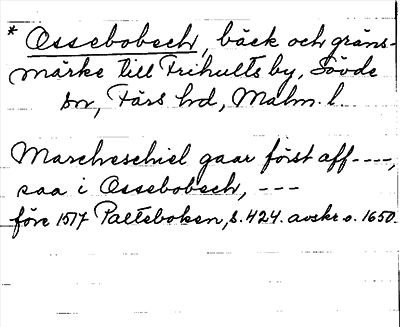 * Ossebobsch, bäck och gräns-
märke till Frihults by, Sövde
sn, Färs hd, Malm. l.
Marcheschiel gaar först aff ----,
saa i Ossebobsch, ---
före 1517 Palteboken, s. 424. avskr. o. 1650.